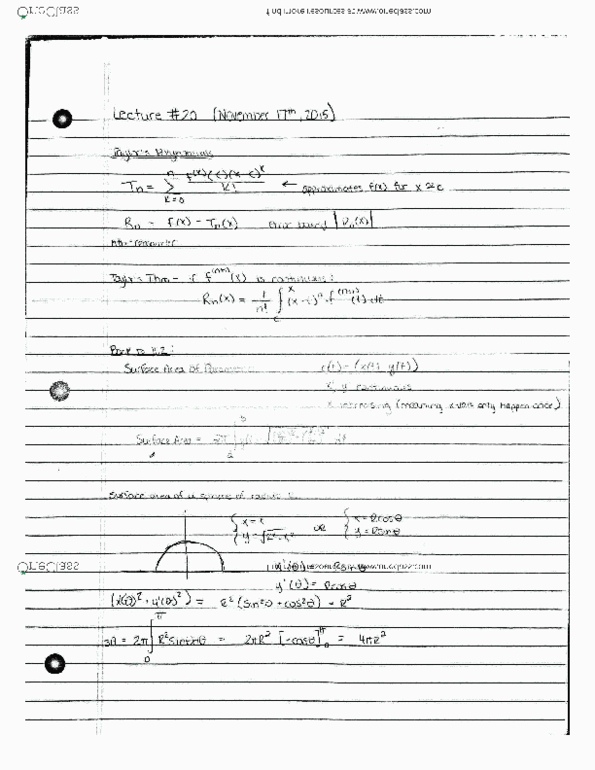 OneClass find more resources at www.oneclass.com
Lecture #20 (November 17th, 2015)
Taylor's Polynomials
Tn = Σ k=0 n f^(k)(c)(x-c)^k / k! ← approximates f(x) for x≈c
Rn = f(x) - Tn(x) error bound |Rn(x)|
Taylor's Thm - if f^(n+1)(x) is continuous:
Rn(x) = 1/n! ∫ c x (x-t)^n f^(n+1)(t) dt
Back to 8.2:
Surface Area of (x(t), y(t))
x', y' continuous
x increasing (meaning x vals only happen once)
Surface Area = 2π ∫ a b
Surface area of a sphere of radius
{ x = t y = √ or { x = Rcosθ y = Rsinθ
OneClass find more resources at www.oneclass.com
y'(θ) = Rcosθ
(x'(θ)² + y'(θ)²) = R²(sin²θ + cos²θ) = R²
SA = 2π ∫ 0 π R² sinθdθ = 2πR² [-cosθ] 0 π = 4πR²